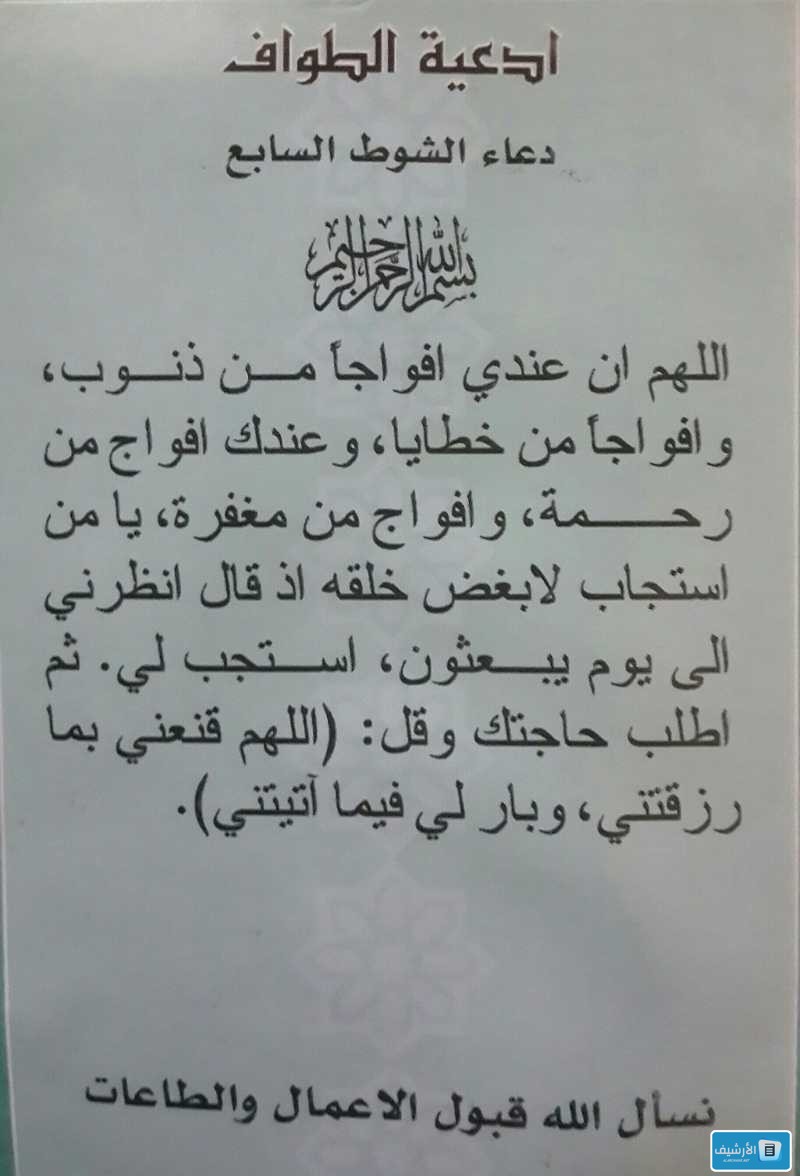 ادعية الطواف
دعاء الشوط السابع
بسم الله الرحمن الرحيم
اللهم ان عندي افواجاً مـن ذنـوب،
وافواجاً من خطايا، وعندك افواج من
رحـــمة، وافواج من مغفرة، يا من
استجاب لابغض خلقه اذ قال انظرني
الى يوم يبـعثون، اسـتجب لي. ثم
اطلب حاجتك وقل: (اللهم قنعني بما
رزقتني، وبار لي فيما آتيتني).
نسأل الله قبول الاعمال والطاعات
الأرشيف